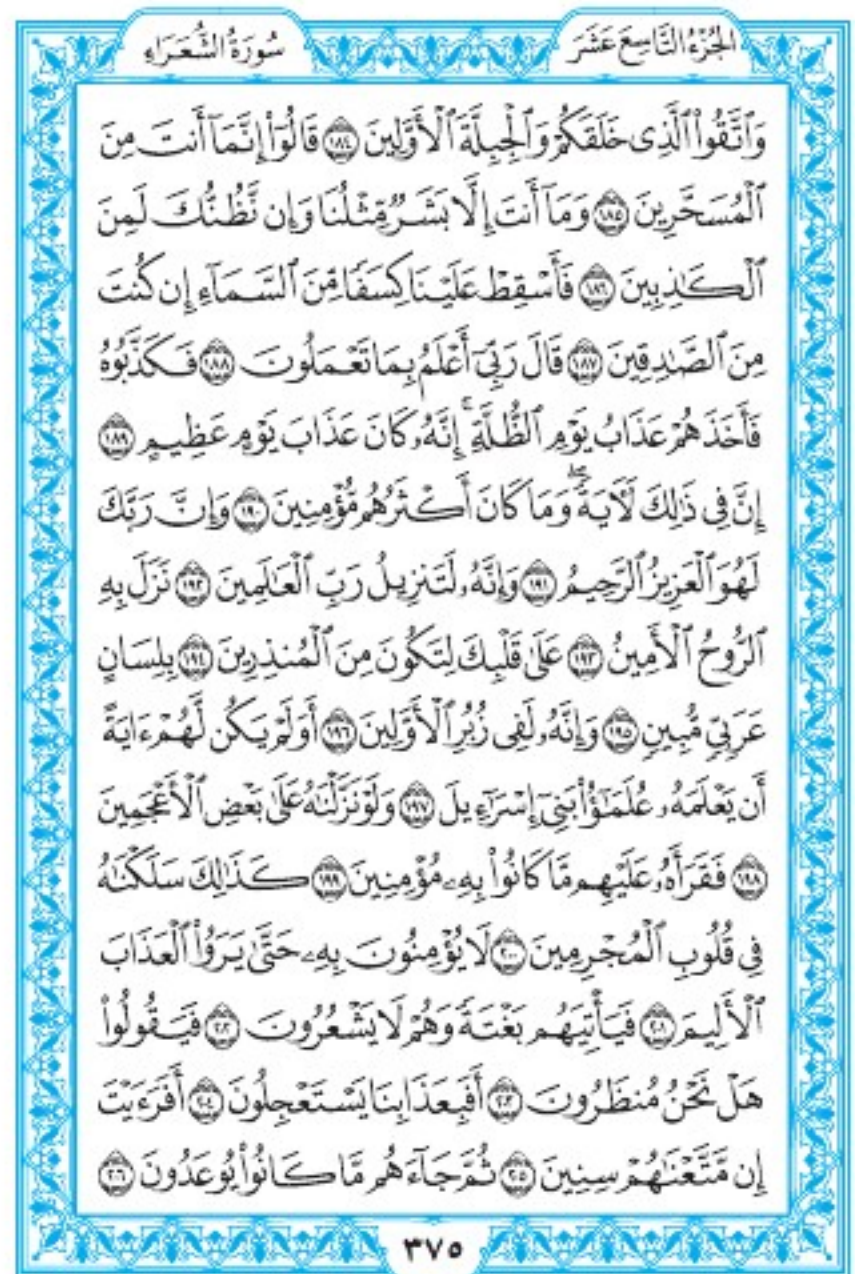 الجُزْءُ التَّاسِعَ عَشَرَ سُورَةُ الشُّعَرَاءِ
وَٱتَّقُوا۟ ٱلَّذِى خَلَقَكُمْ وَٱلْجِبِلَّةَ ٱلْأَوَّلِينَ ١٨٤ قَالُوٓا۟ إِنَّمَآ أَنتَ مِنَ
ٱلْمُسَحَّرِينَ ١٨٥ وَمَآ أَنتَ إِلَّا بَشَرٌ مِّثْلُنَا وَإِن نَّظُنُّكَ لَمِنَ
ٱلْكَـٰذِبِينَ ١٨٦ فَأَسْقِطْ عَلَيْنَا كِسَفًا مِّنَ ٱلسَّمَآءِ إِن كُنتَ
مِنَ ٱلصَّـٰدِقِينَ ١٨٧ قَالَ رَبِّىٓ أَعْلَمُ بِمَا تَعْمَلُونَ ١٨٨ فَكَذَّبُوهُ
فَأَخَذَهُمْ عَذَابُ يَوْمِ ٱلظُّلَّةِ ۚ إِنَّهُۥ كَانَ عَذَابَ يَوْمٍ عَظِيمٍ ١٨٩
إِنَّ فِى ذَٰلِكَ لَـَٔايَةً ۖ وَمَا كَانَ أَكْثَرُهُم مُّؤْمِنِينَ ١٩٠ وَإِنَّ رَبَّكَ
لَهُوَ ٱلْعَزِيزُ ٱلرَّحِيمُ ١٩١ وَإِنَّهُۥ لَتَنزِيلُ رَبِّ ٱلْعَـٰلَمِينَ ١٩٢ نَزَلَ بِهِ
ٱلرُّوحُ ٱلْأَمِينُ ١٩٣ عَلَىٰ قَلْبِكَ لِتَكُونَ مِنَ ٱلْمُنذِرِينَ ١٩٤ بِلِسَانٍ
عَرَبِىٍّ مُّبِينٍ ١٩٥ وَإِنَّهُۥ لَفِى زُبُرِ ٱلْأَوَّلِينَ ١٩٦ أَوَلَمْ يَكُن لَّهُمْ ءَايَةً
أَن يَعْلَمَهُۥ عُلَمَـٰٓؤُا۟ بَنِىٓ إِسْرَٰٓءِيلَ ١٩٧ وَلَوْ نَزَّلْنَـٰهُ عَلَىٰ بَعْضِ ٱلْأَعْجَمِينَ
١٩٨ فَقَرَأَهُۥ عَلَيْهِم مَّا كَانُوا۟ بِهِۦ مُؤْمِنِينَ ١٩٩ كَذَٰلِكَ سَلَكْنَـٰهُ
فِى قُلُوبِ ٱلْمُجْرِمِينَ ٢٠٠ لَا يُؤْمِنُونَ بِهِۦ حَتَّىٰ يَرَوُا۟ ٱلْعَذَابَ
ٱلْأَلِيمَ ٢٠١ فَيَأْتِيَهُم بَغْتَةً وَهُمْ لَا يَشْعُرُونَ ٢٠٢ فَيَقُولُوا۟
هَلْ نَحْنُ مُنظَرُونَ ٢٠٣ أَفَبِعَذَابِنَا يَسْتَعْجِلُونَ ٢٠٤ أَفَرَءَيْتَ
إِن مَّتَّعْنَـٰهُمْ سِنِينَ ٢٠٥ ثُمَّ جَآءَهُم مَّا كَانُوا۟ يُوعَدُونَ ٢٠٦
٣٧٥